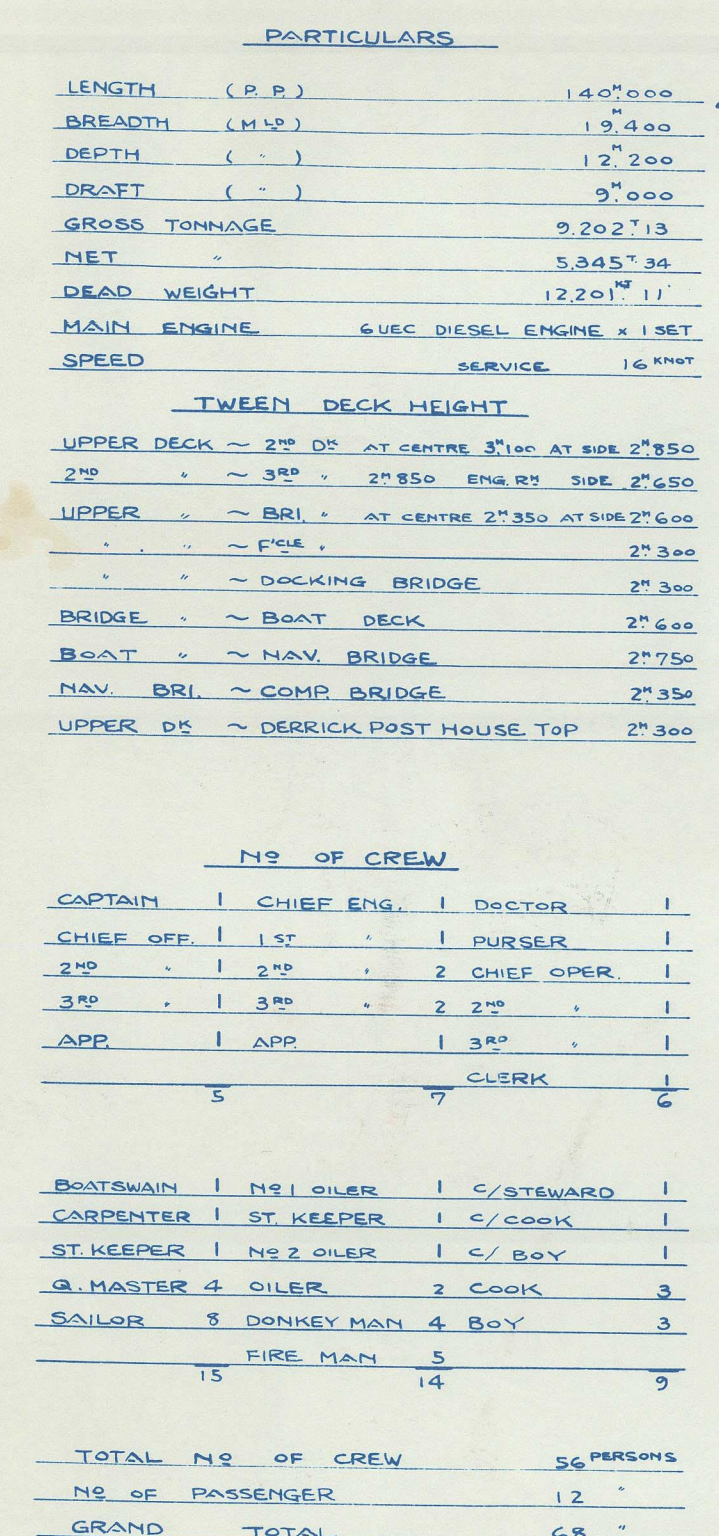 PARTICULARS
LENGTH (P. P.) 140.M000
BREADTH (MLD) 19.M400
DEPTH ( " ) 12.M200
DRAFT ( " ) 9.M000
GROSS TONNAGE 9.202.T13
NET " 5,345.T34
DEAD WEIGHT 12,201.KT11
MAIN ENGINE 6UEC DIESEL ENGINE x 1 SET
SPEED SERVICE 16 KNOT
TWEEN DECK HEIGHT
UPPER DECK ~ 2ND DK AT CENTRE 3.M100 AT SIDE 2.M850
2ND " ~ 3RD " 2.M850 ENG. RM SIDE 2.M650
UPPER " ~ BRI. " AT CENTRE 2.M350 AT SIDE 2.M600
" . " ~ F'CLE " 2.M300
" " ~ DOCKING BRIDGE 2.M300
BRIDGE " ~ BOAT DECK 2.M600
BOAT " ~ NAV. BRIDGE 2.M750
NAV. BRI. ~ COMP. BRIDGE 2.M350
UPPER DK ~ DERRICK POST HOUSE TOP 2.M300
No OF CREW
CAPTAIN 1 CHIEF ENG. 1 DOCTOR 1
CHIEF OFF. 1 1ST " 1 PURSER 1
2ND " 1 2ND " 2 CHIEF OPER. 1
3RD " 1 3RD " 2 2ND " 1
APP. 1 APP. 1 3RD " 1
CLERK 1
5 7 6
BOATSWAIN 1 No 1 OILER 1 C/STEWARD 1
CARPENTER 1 ST. KEEPER 1 C/COOK 1
ST. KEEPER 1 No 2 OILER 1 C/ BOY 1
Q. MASTER 4 OILER 2 COOK 3
SAILOR 8 DONKEY MAN 4 BOY 3
FIRE MAN 5
15 14 9
TOTAL No OF CREW 56 PERSONS
No OF PASSENGER 12 "
GRAND TOTAL 68 "